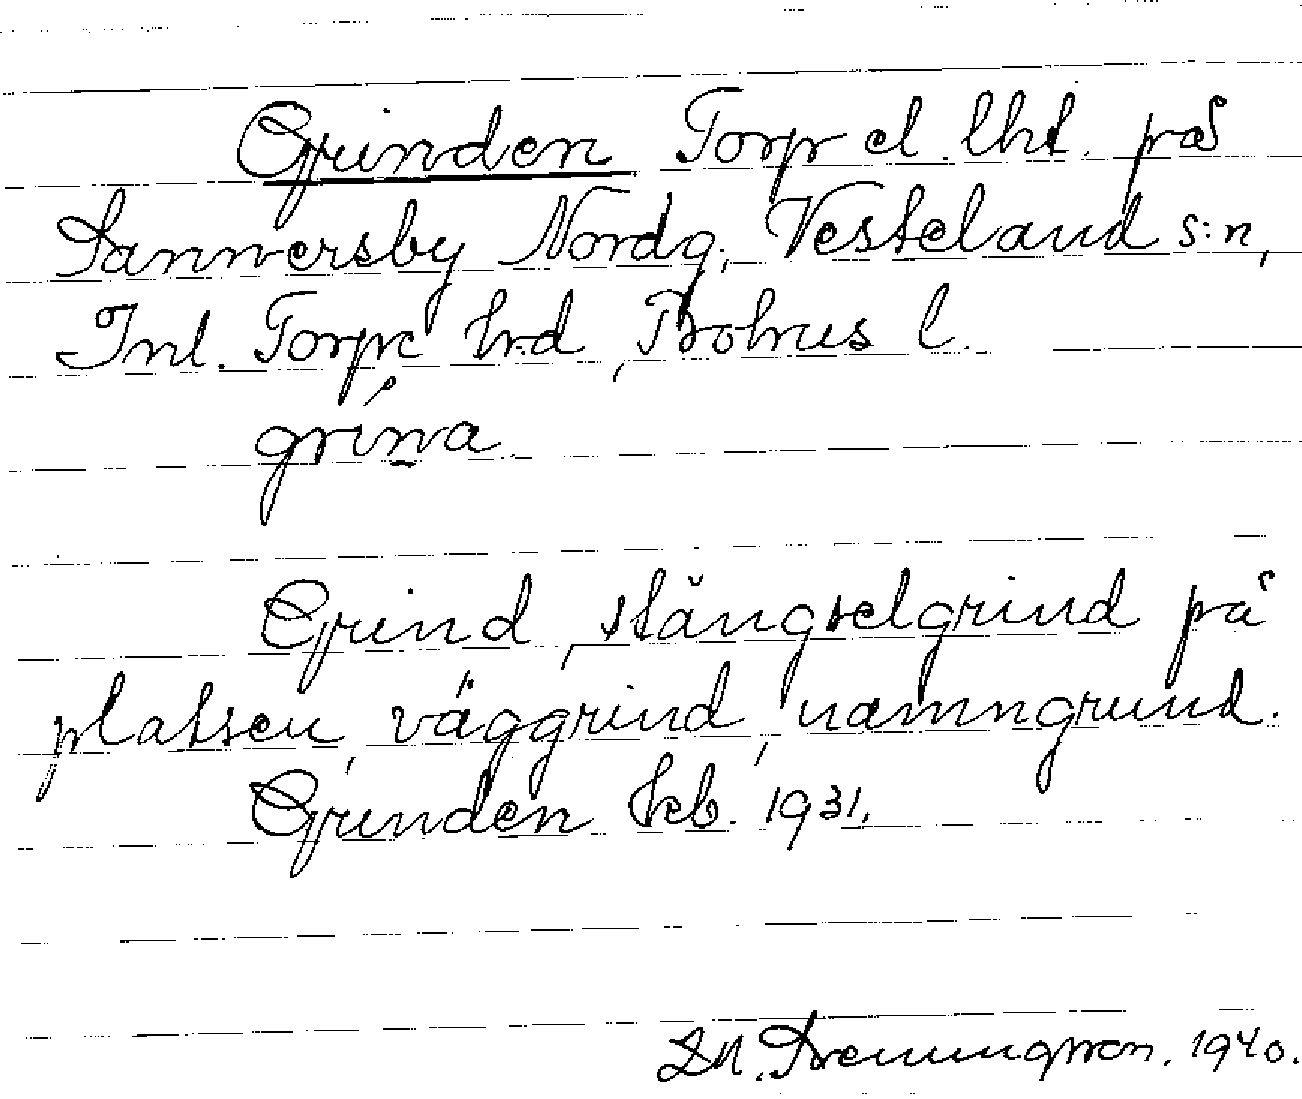 Grinden Torp el. lht. på
Sannersby Nordg., Vesterland s:n,
Inl. Torpe hrd, Bohus l.
grína
Grind, stängselgrind på
platsen, väggrind, namngrund.
Grinden Jeb. 1931.
1940.